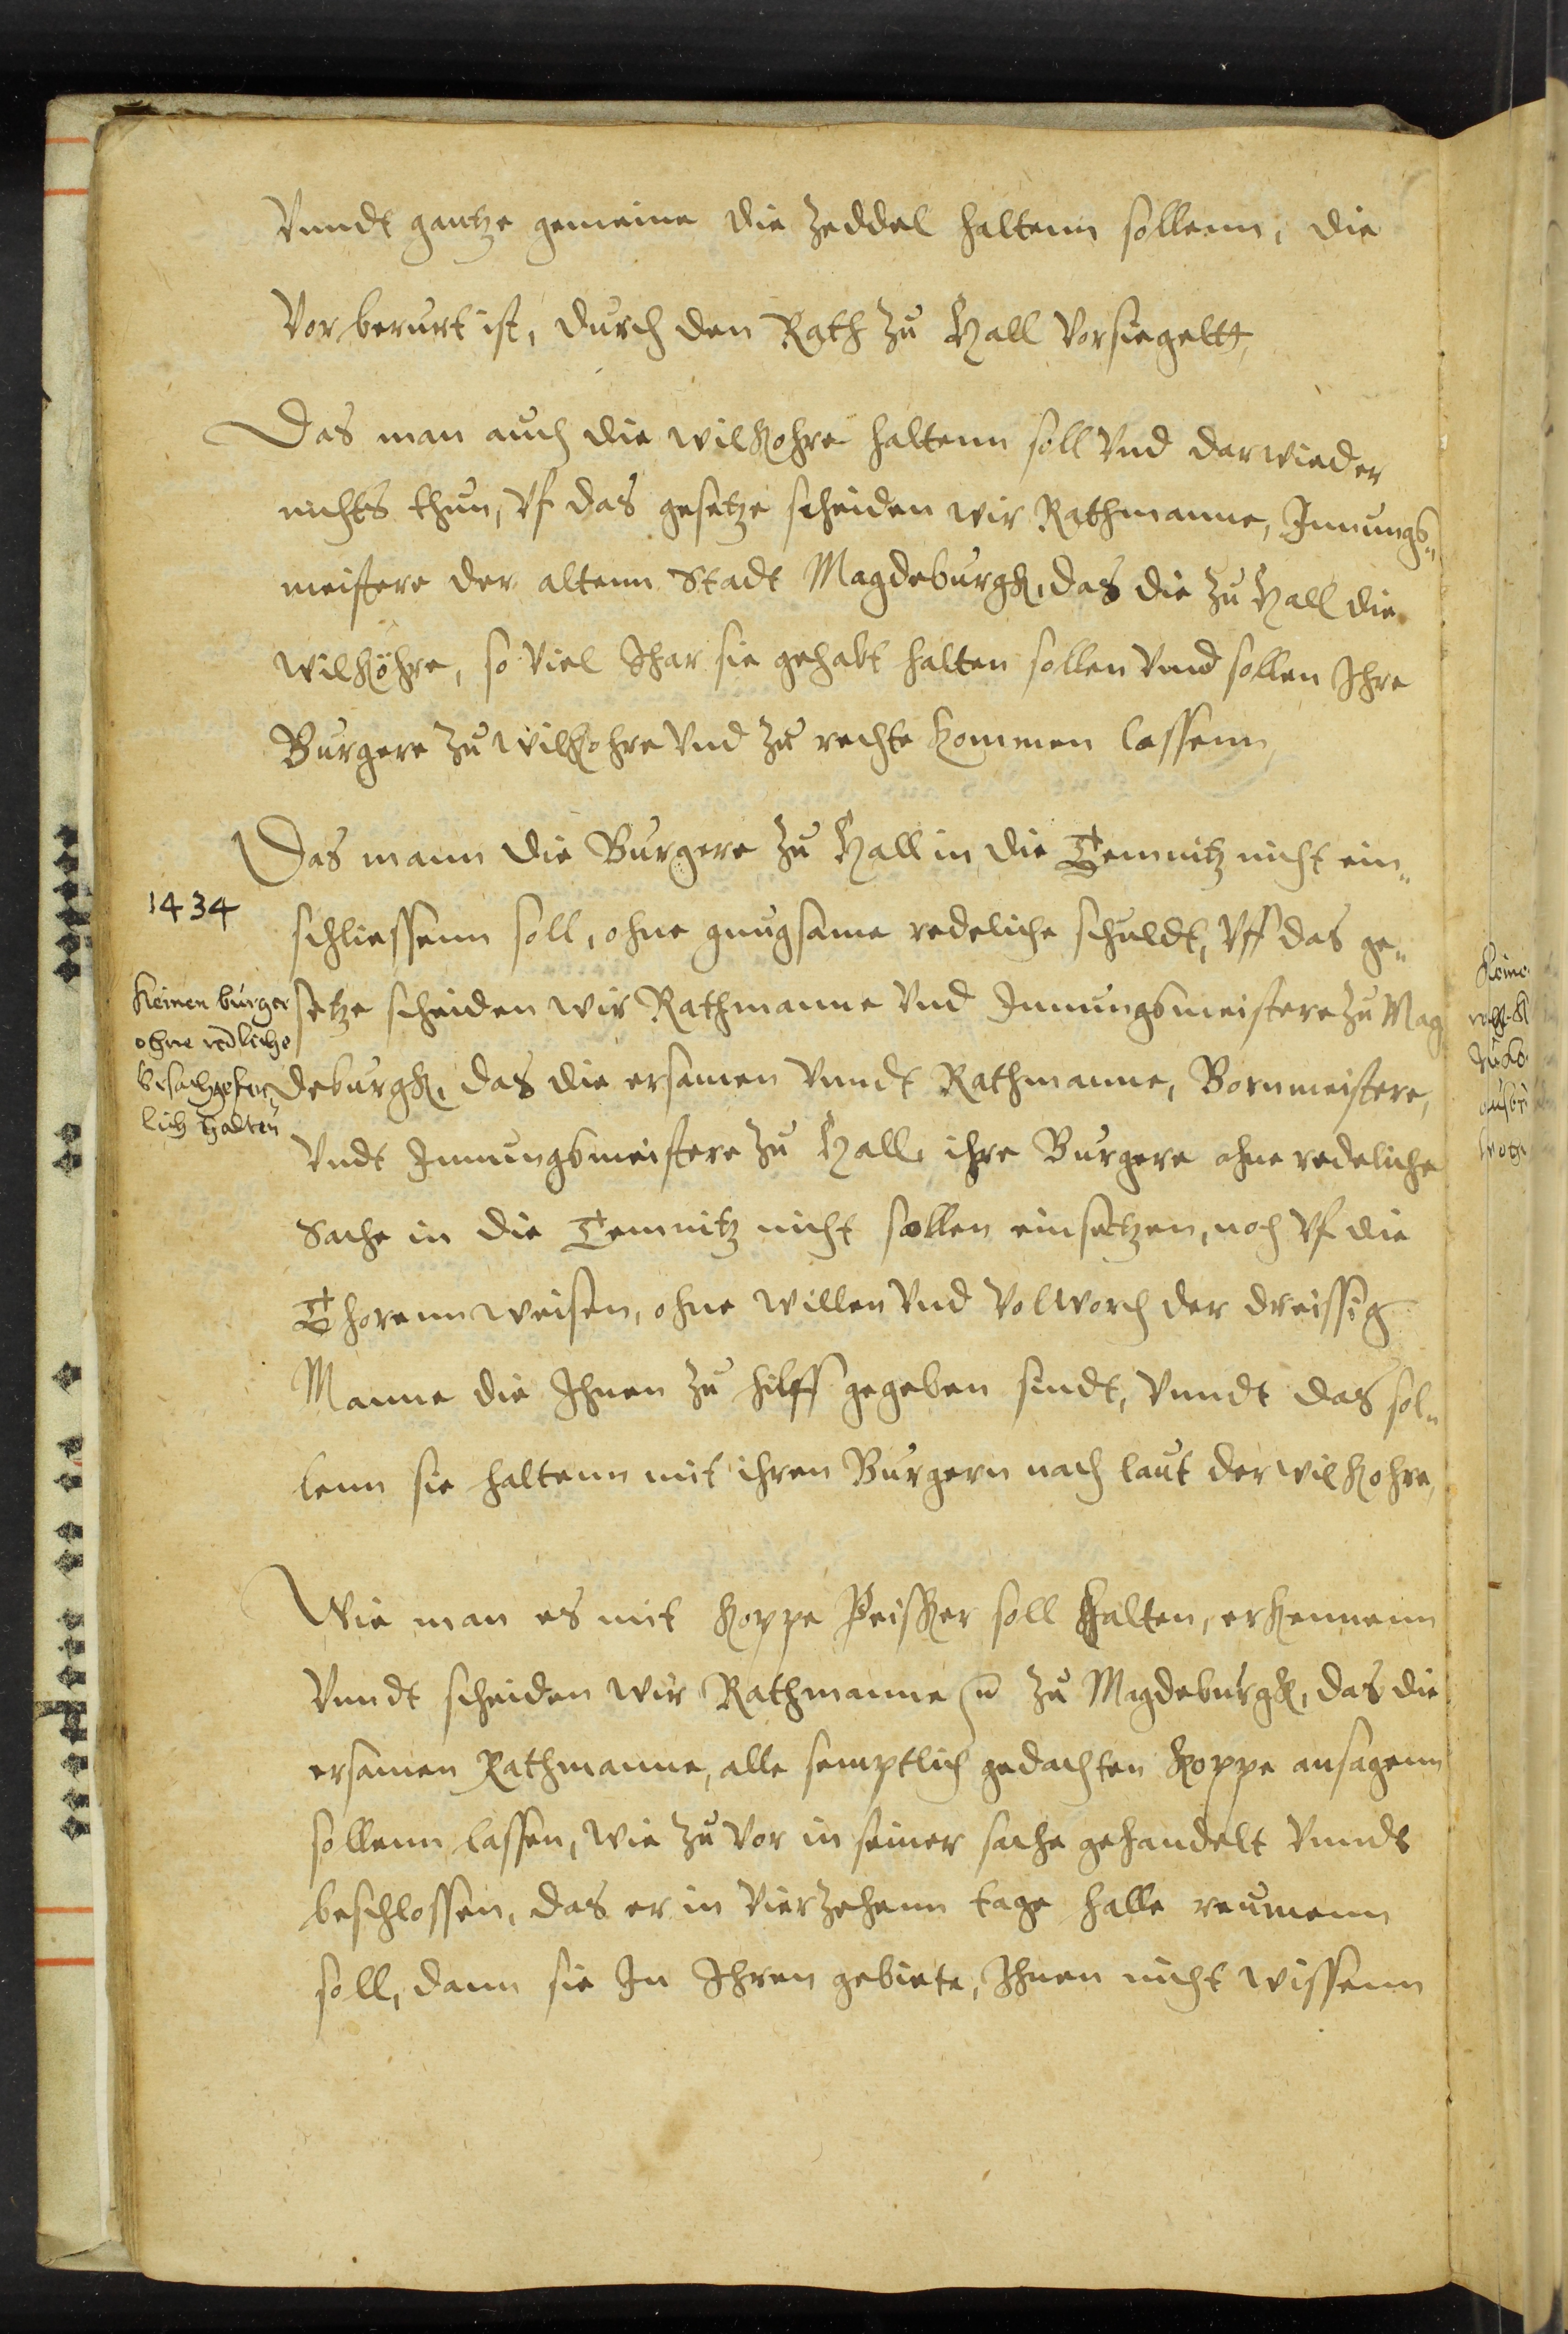 Vnndt gantze gemeine die Zeddel haltenn sollenn, die
Vor berurt ist, durch den Rath zu Hall Vorsiegeltt,
Das man auch die wilkohre haltenn soll Vnd darwieder
nichts thun, Vf das gesetze scheiden wir Rathmanne, Innungs„
meistere der altenn Stadt Magdeburgk, das die zu Hall die
wilköhre, so Viel Ihar sie gehabt halten sollen Vnnd sollen Ihre
Burgere zu wilkohre Vnd zu rechte kommen lassenn,
Das mann die Burgere zu Hall in die Temnitz nicht ein„
1434
schliessenn soll, ohne gnugsame redeliche schuldt, Vff das ge„
setze scheiden wir Rathmanne Vnd Innungsmeistere zu Mag
Keinen burger
ohne redliche
lich halten
deburgk, das die ersamen Vnndt Rathmanne, Bornmeistere,
Vndt Innungsmeistere zu Hall, ihre Burgere ohne redeliche
Sache in die Temnitz nicht sollen einsetzen, noch Vf die
Thorenn weisen, ohne willen Vnd Volworch der dreissig
Manne die Ihnen zu hilff gegeben sindt, Vnndt das sol„
lenn sie haltenn mit ihren Burgern nach laut der wilkohre,
Wie man es mit Koppe Peisker soll halten, erkennenn
Vnndt scheiden wir Rathmanne zu Magdeburgk, das die
ersamen Rathmanne, alle semptlich gedachten Koppe ansagenn
sollenn lassen, wie zu Vor in seiner sache gehandelt Vnndt
beschlossen, das er in Vierzehenn tage Halle reumenn
soll, dann sie In Ihren gebiete, Ihnen nicht wissenn